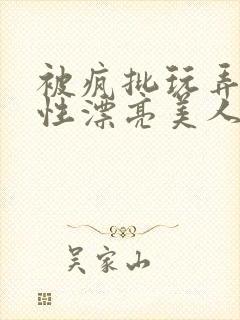 被疯批玩弄
性漂亮美人
吴家山